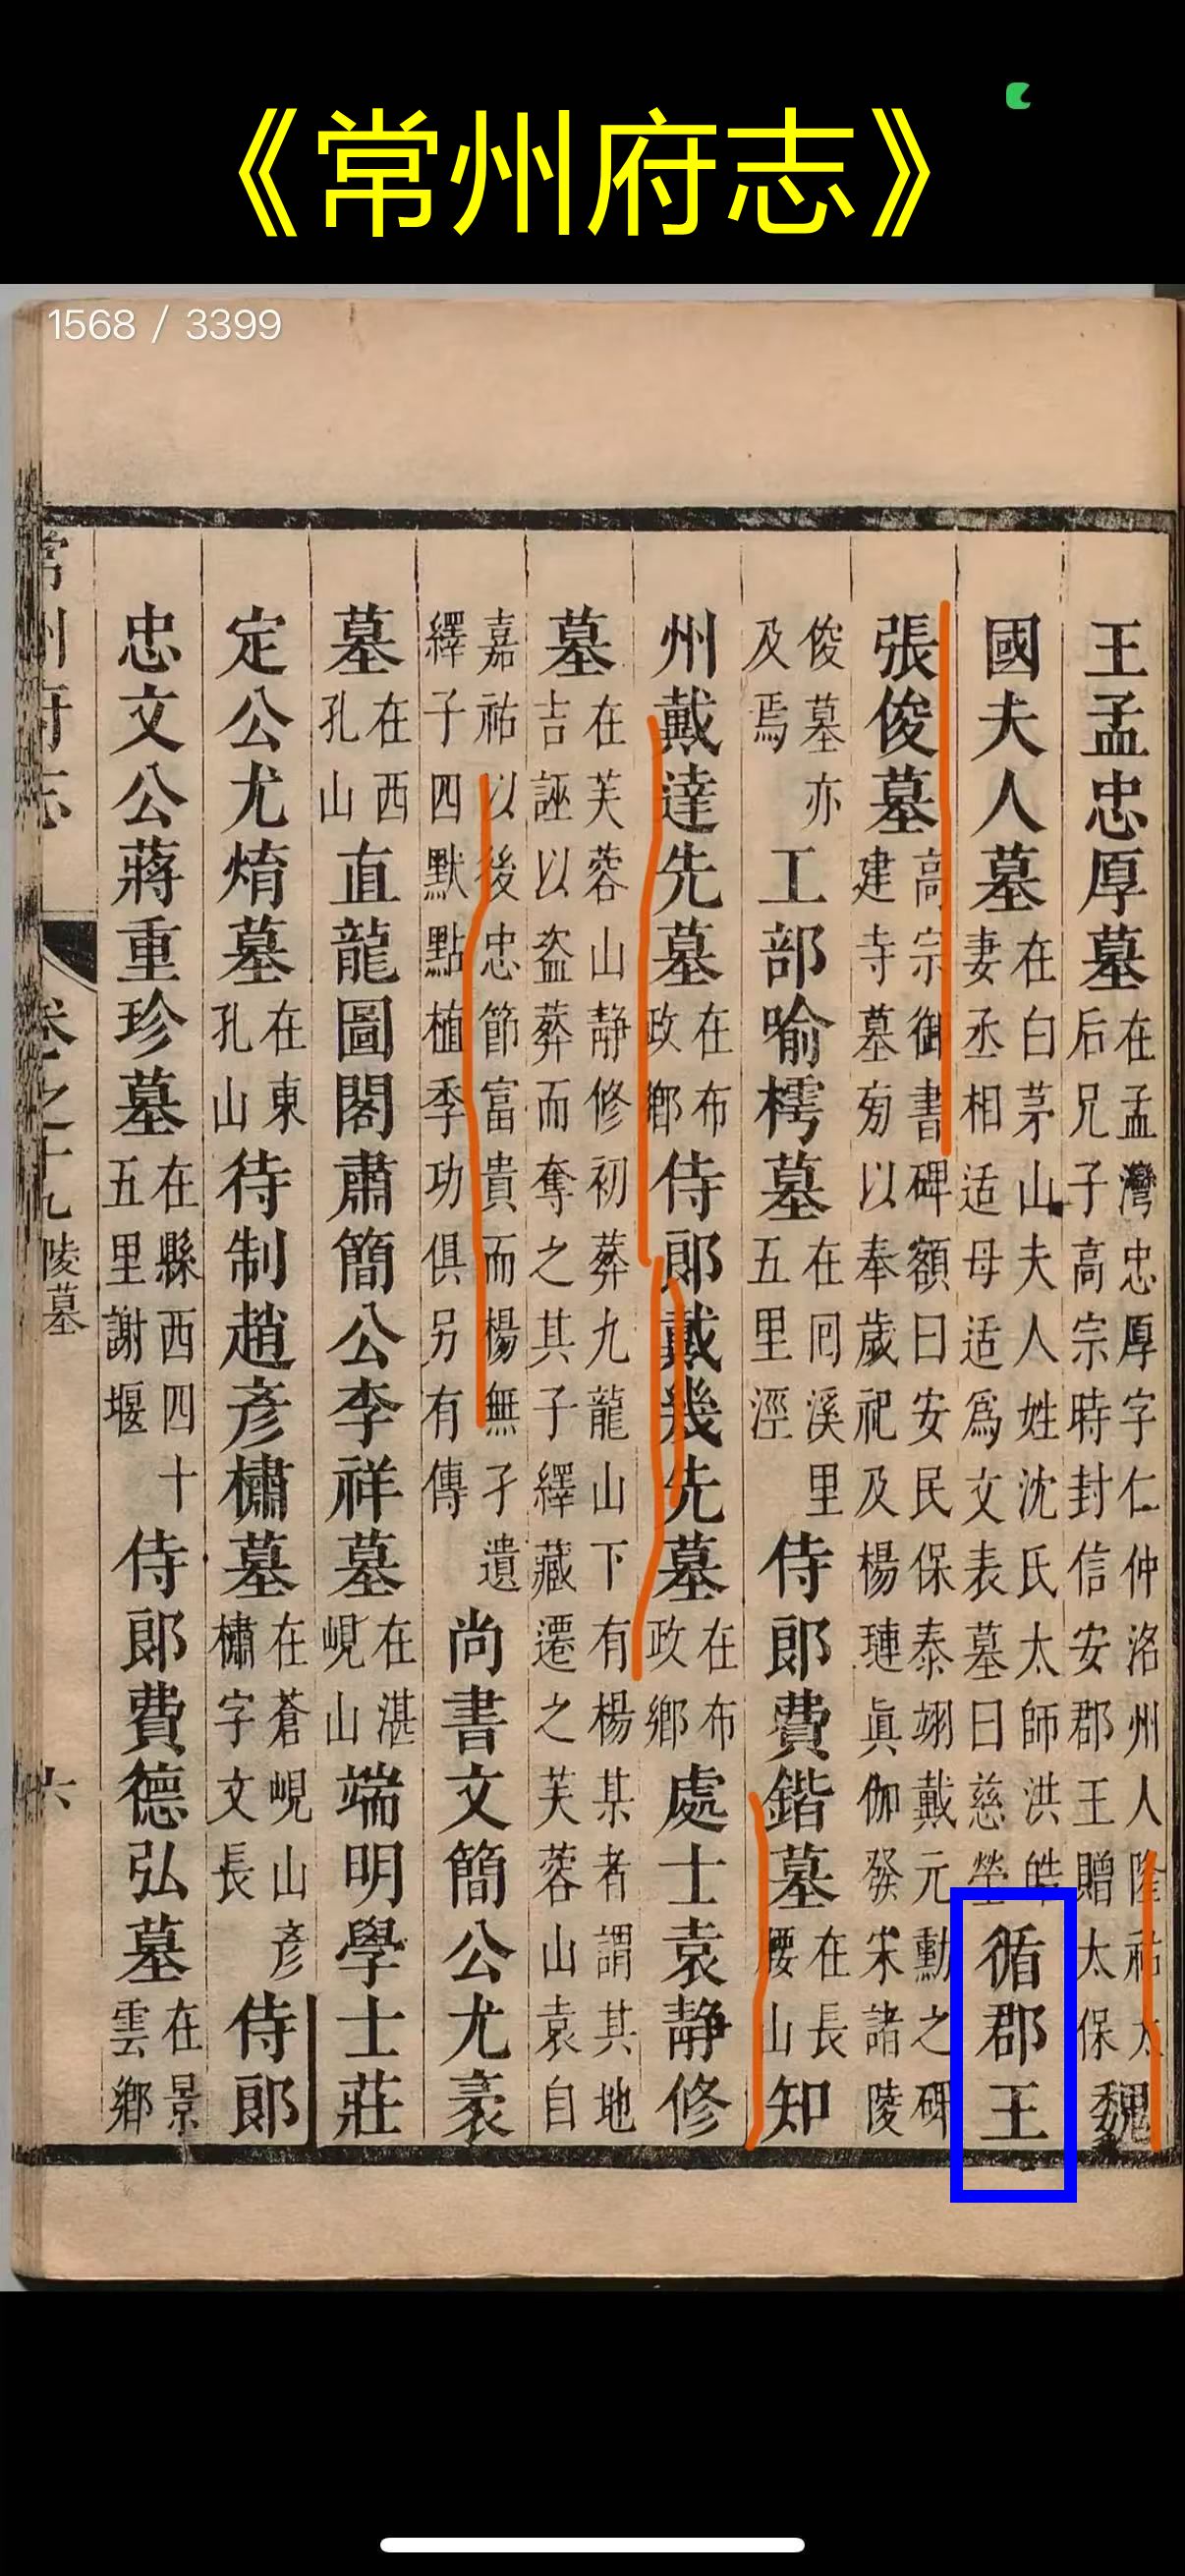 《常州府志》
1568 / 3399
王孟忠厚墓 在孟灣忠厚字仁仲洛州人隆祐太后兄子高宗時封信安郡王贈太保 魏
國夫人墓 在白茅山夫人姓沈氏太師洪皓妻丞相适母适爲文表墓曰慈塋 循郡王
張俊墓 高宗御書碑額曰安民保泰翊戴元勳之碑建寺墓旁以奉歲祀及楊璉眞伽發宋諸陵
俊墓亦及焉 工部喻樗墓 在冋溪里五里涇 侍郎費鍇墓 在長腰山 知
州戴達先墓 在布政鄉 侍郎戴幾先墓 在布政鄉 處士袁靜修
墓 在芙蓉山靜修初葬九龍山下有楊某者謂其地吉誣以盜葬而奪之其子繹藏遷之芙蓉山袁自
嘉祐以後忠節富貴而楊無孑遺繹子四默點植季功俱另有傳 尚書文簡公尤袤
墓 在西孔山 直龍圖閣肅簡公李祥墓 在湛峴山 端明學士莊
定公尤焴墓 在東孔山 待制趙彥橚墓 在蒼峴山彥橚字文長 侍郎
忠文公蔣重珍墓 在縣西四十五里謝堰 侍郎費德弘墓 在景雲鄉
常州府志 卷之十九 陵墓 六